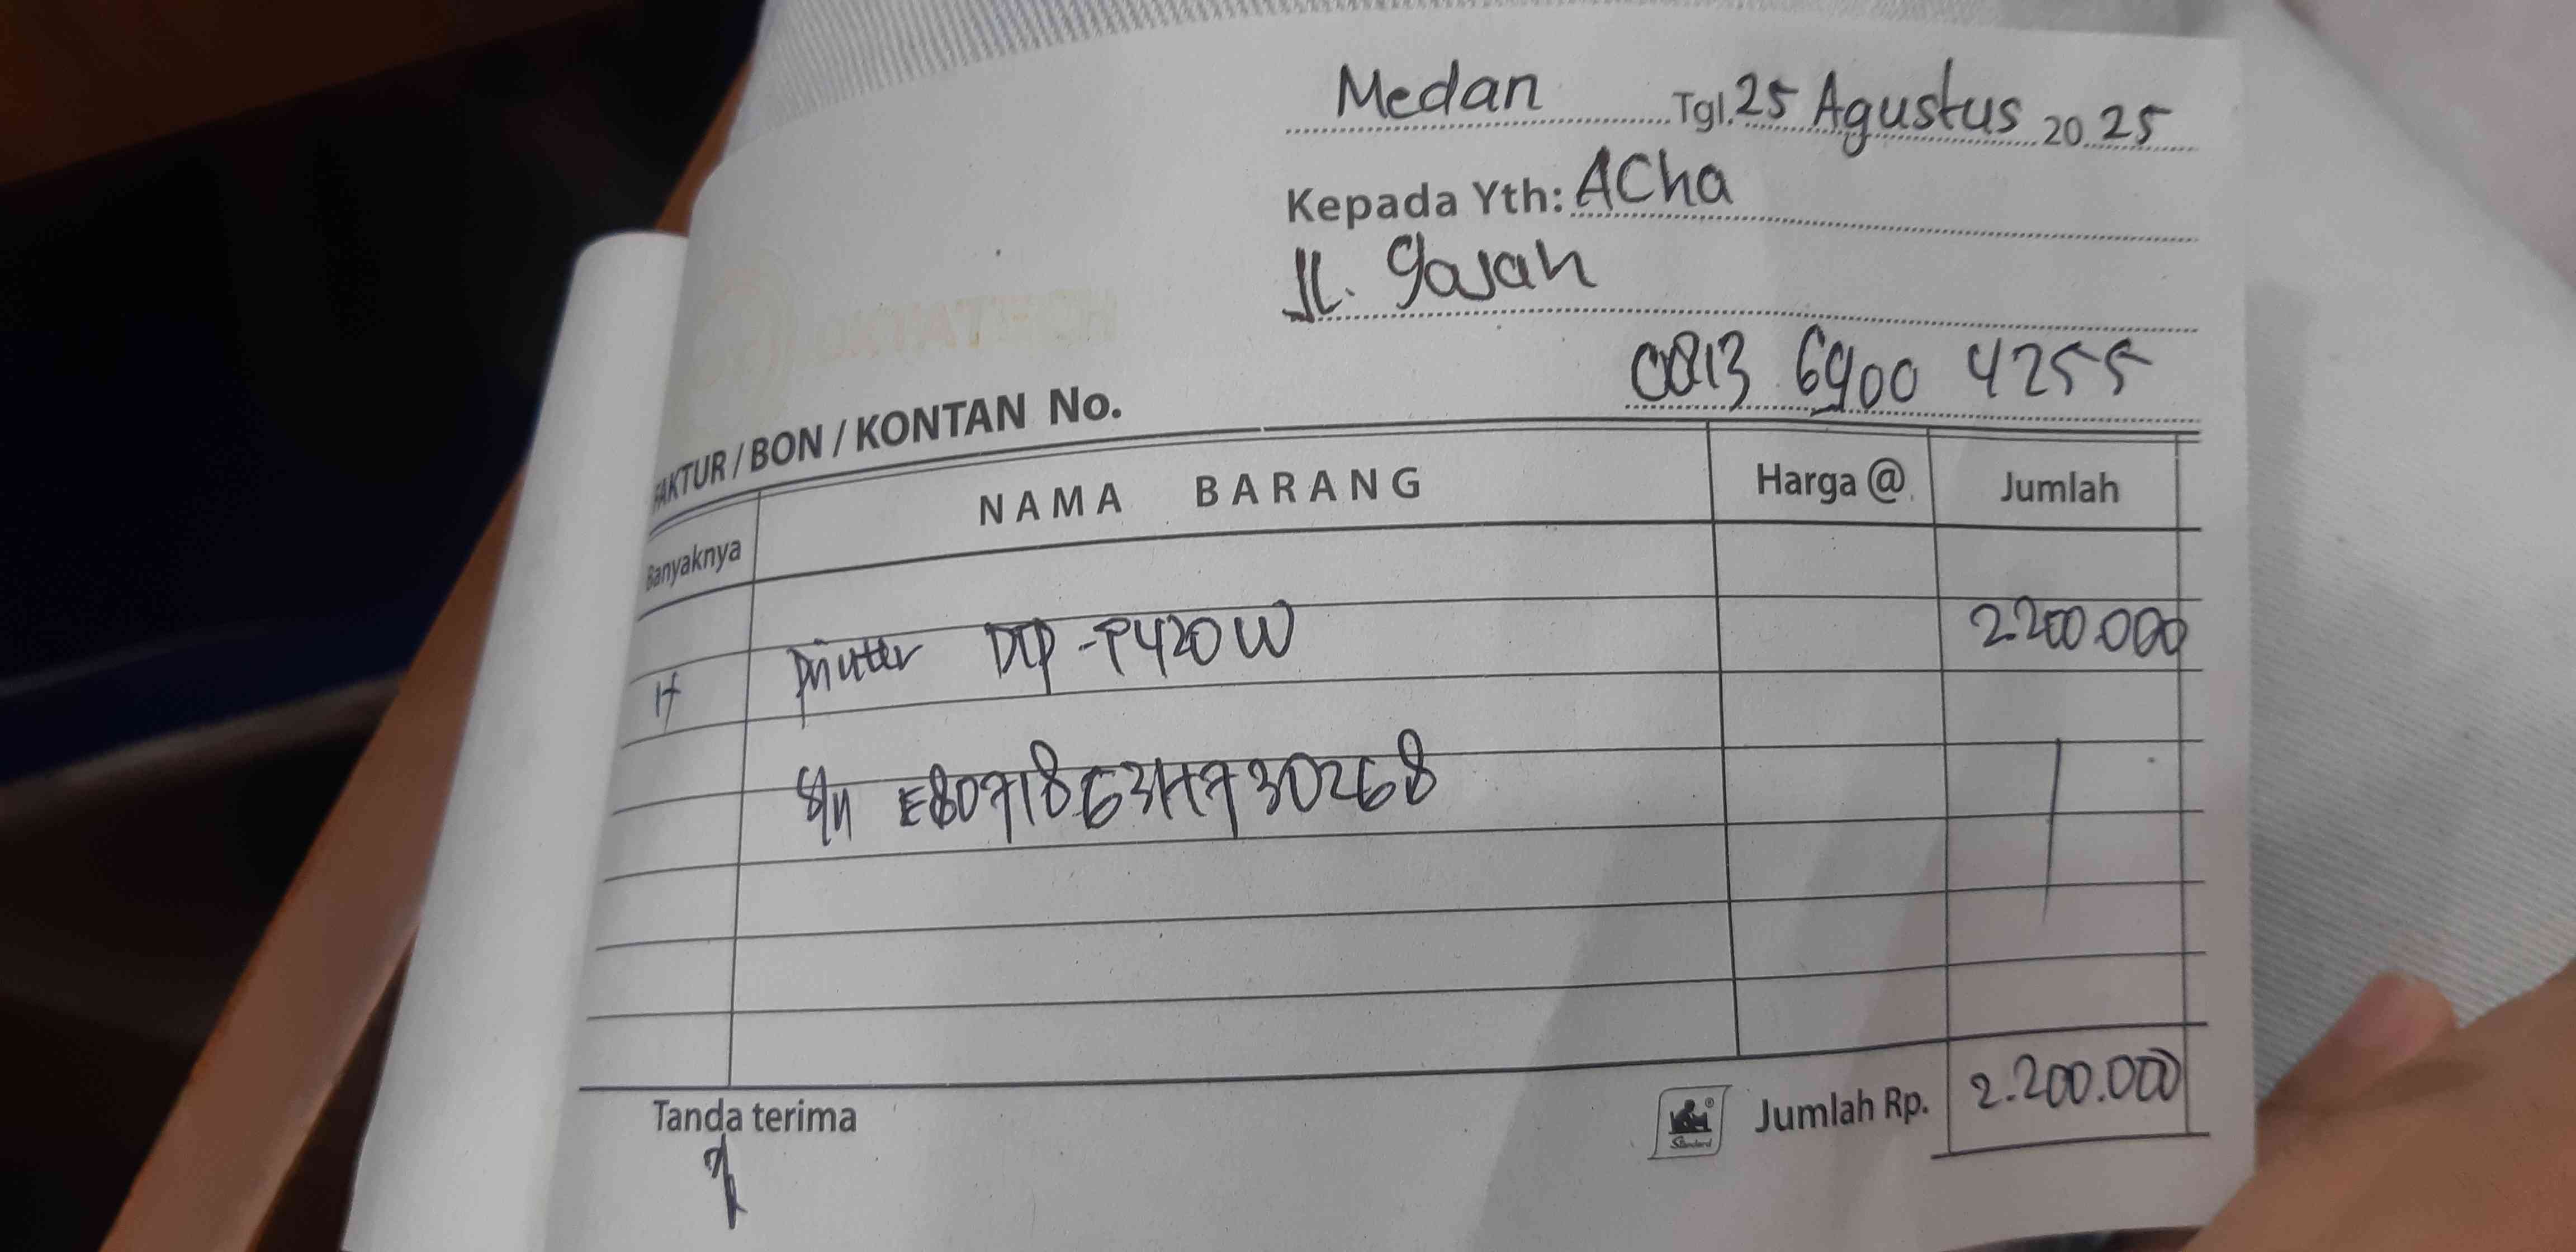 Medan Tgl. 25 Agustus 2025
Kepada Yth: ACha
Jl. Gajah
0813 6900 4255
FAKTUR / BON / KONTAN No.
Banyaknya NAMA BARANG Harga @ Jumlah
Printer DCP-T420W 2.200.000
S/N E80718G3H730268
Tanda terima Standard Jumlah Rp. 2.200.000